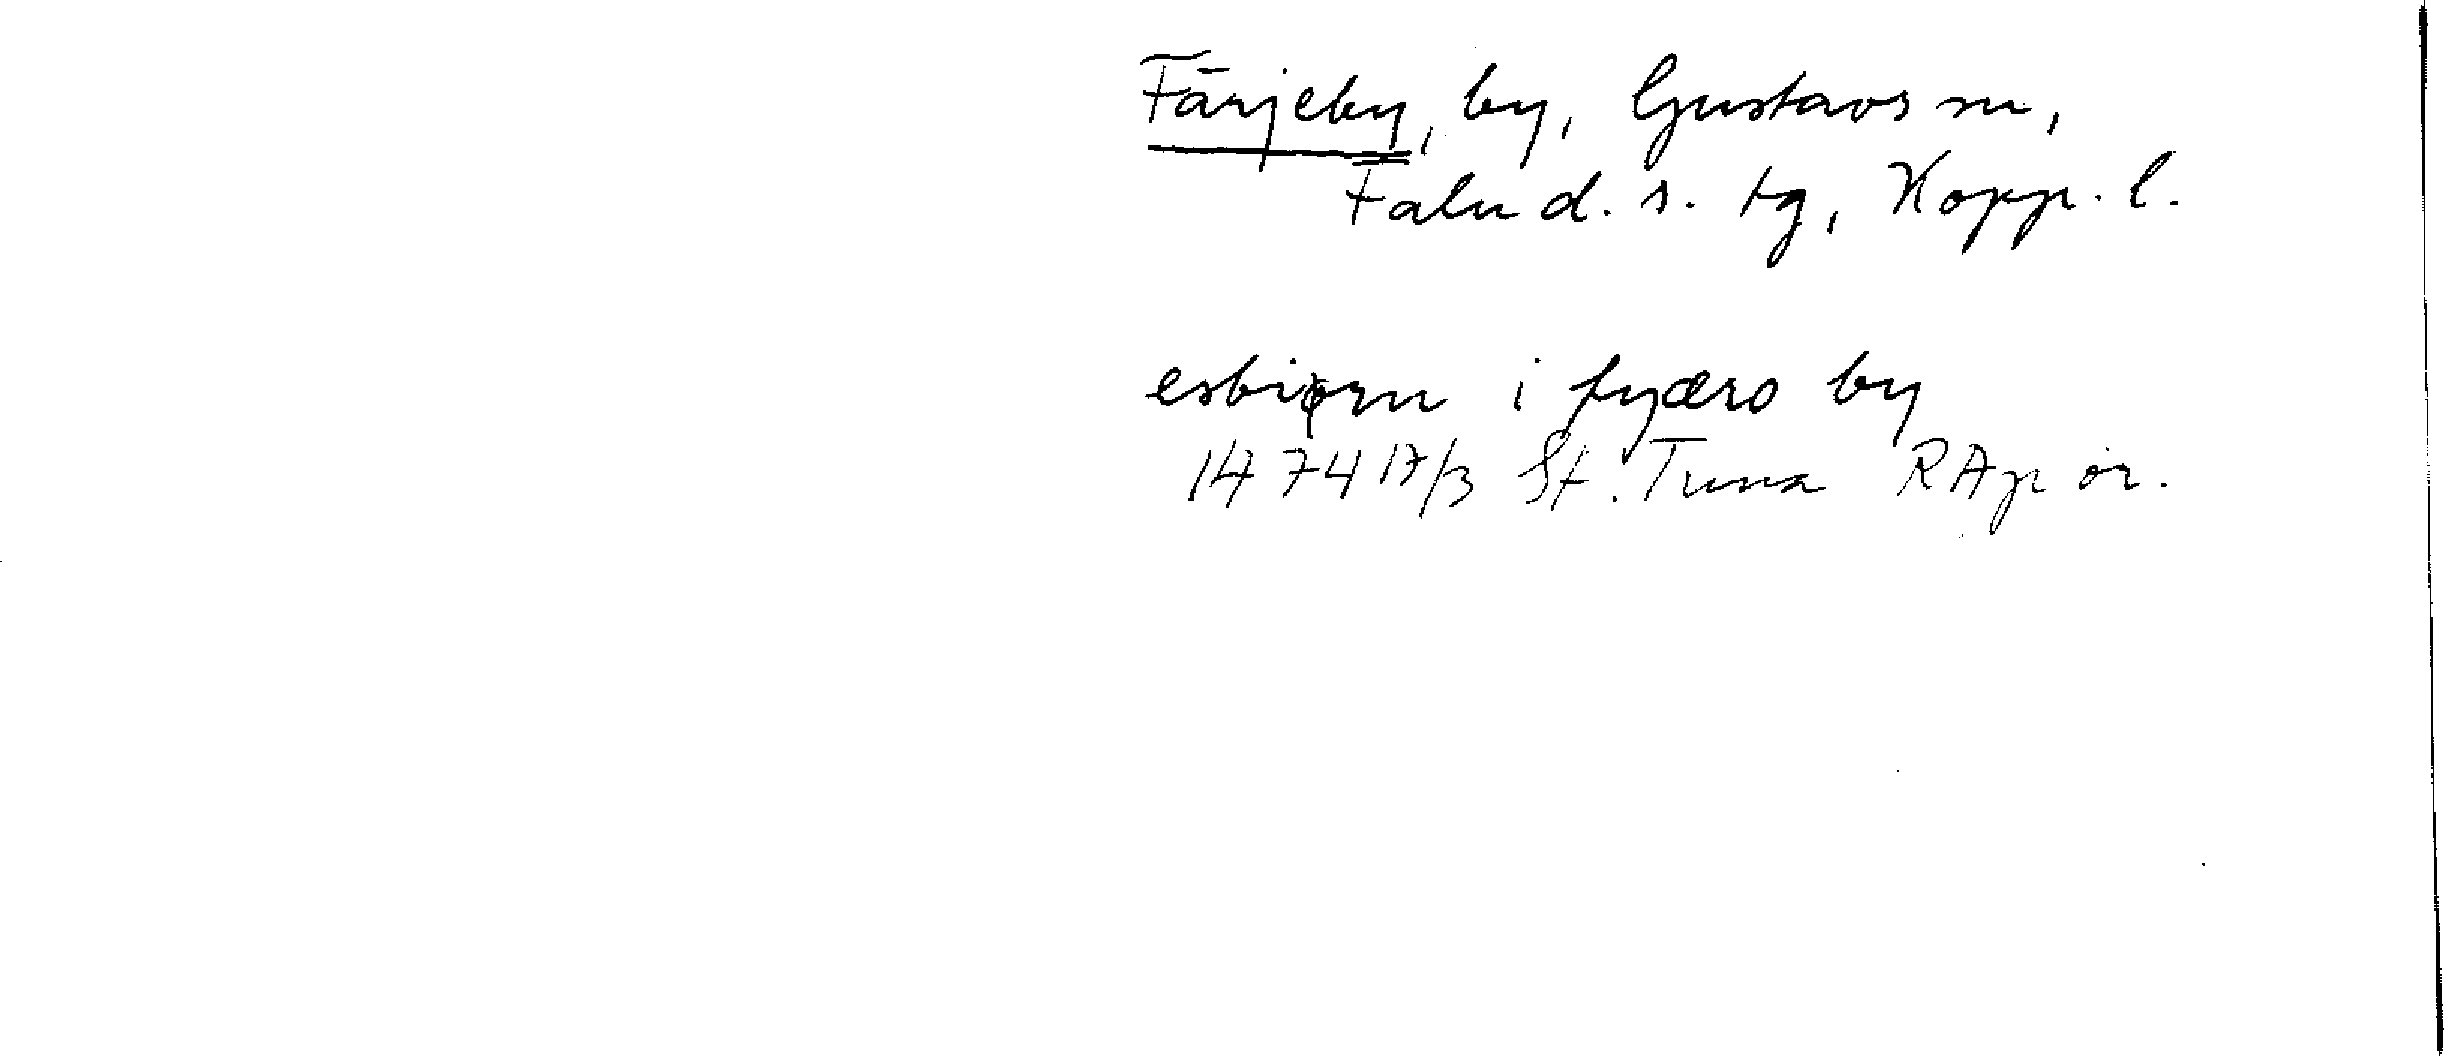 Färjeby, by, Gustavs sn,
Falu d. s. tg, Kopp. l.
esbiørn i fyæro by
1474 17/3 St. Tuna RAp or.